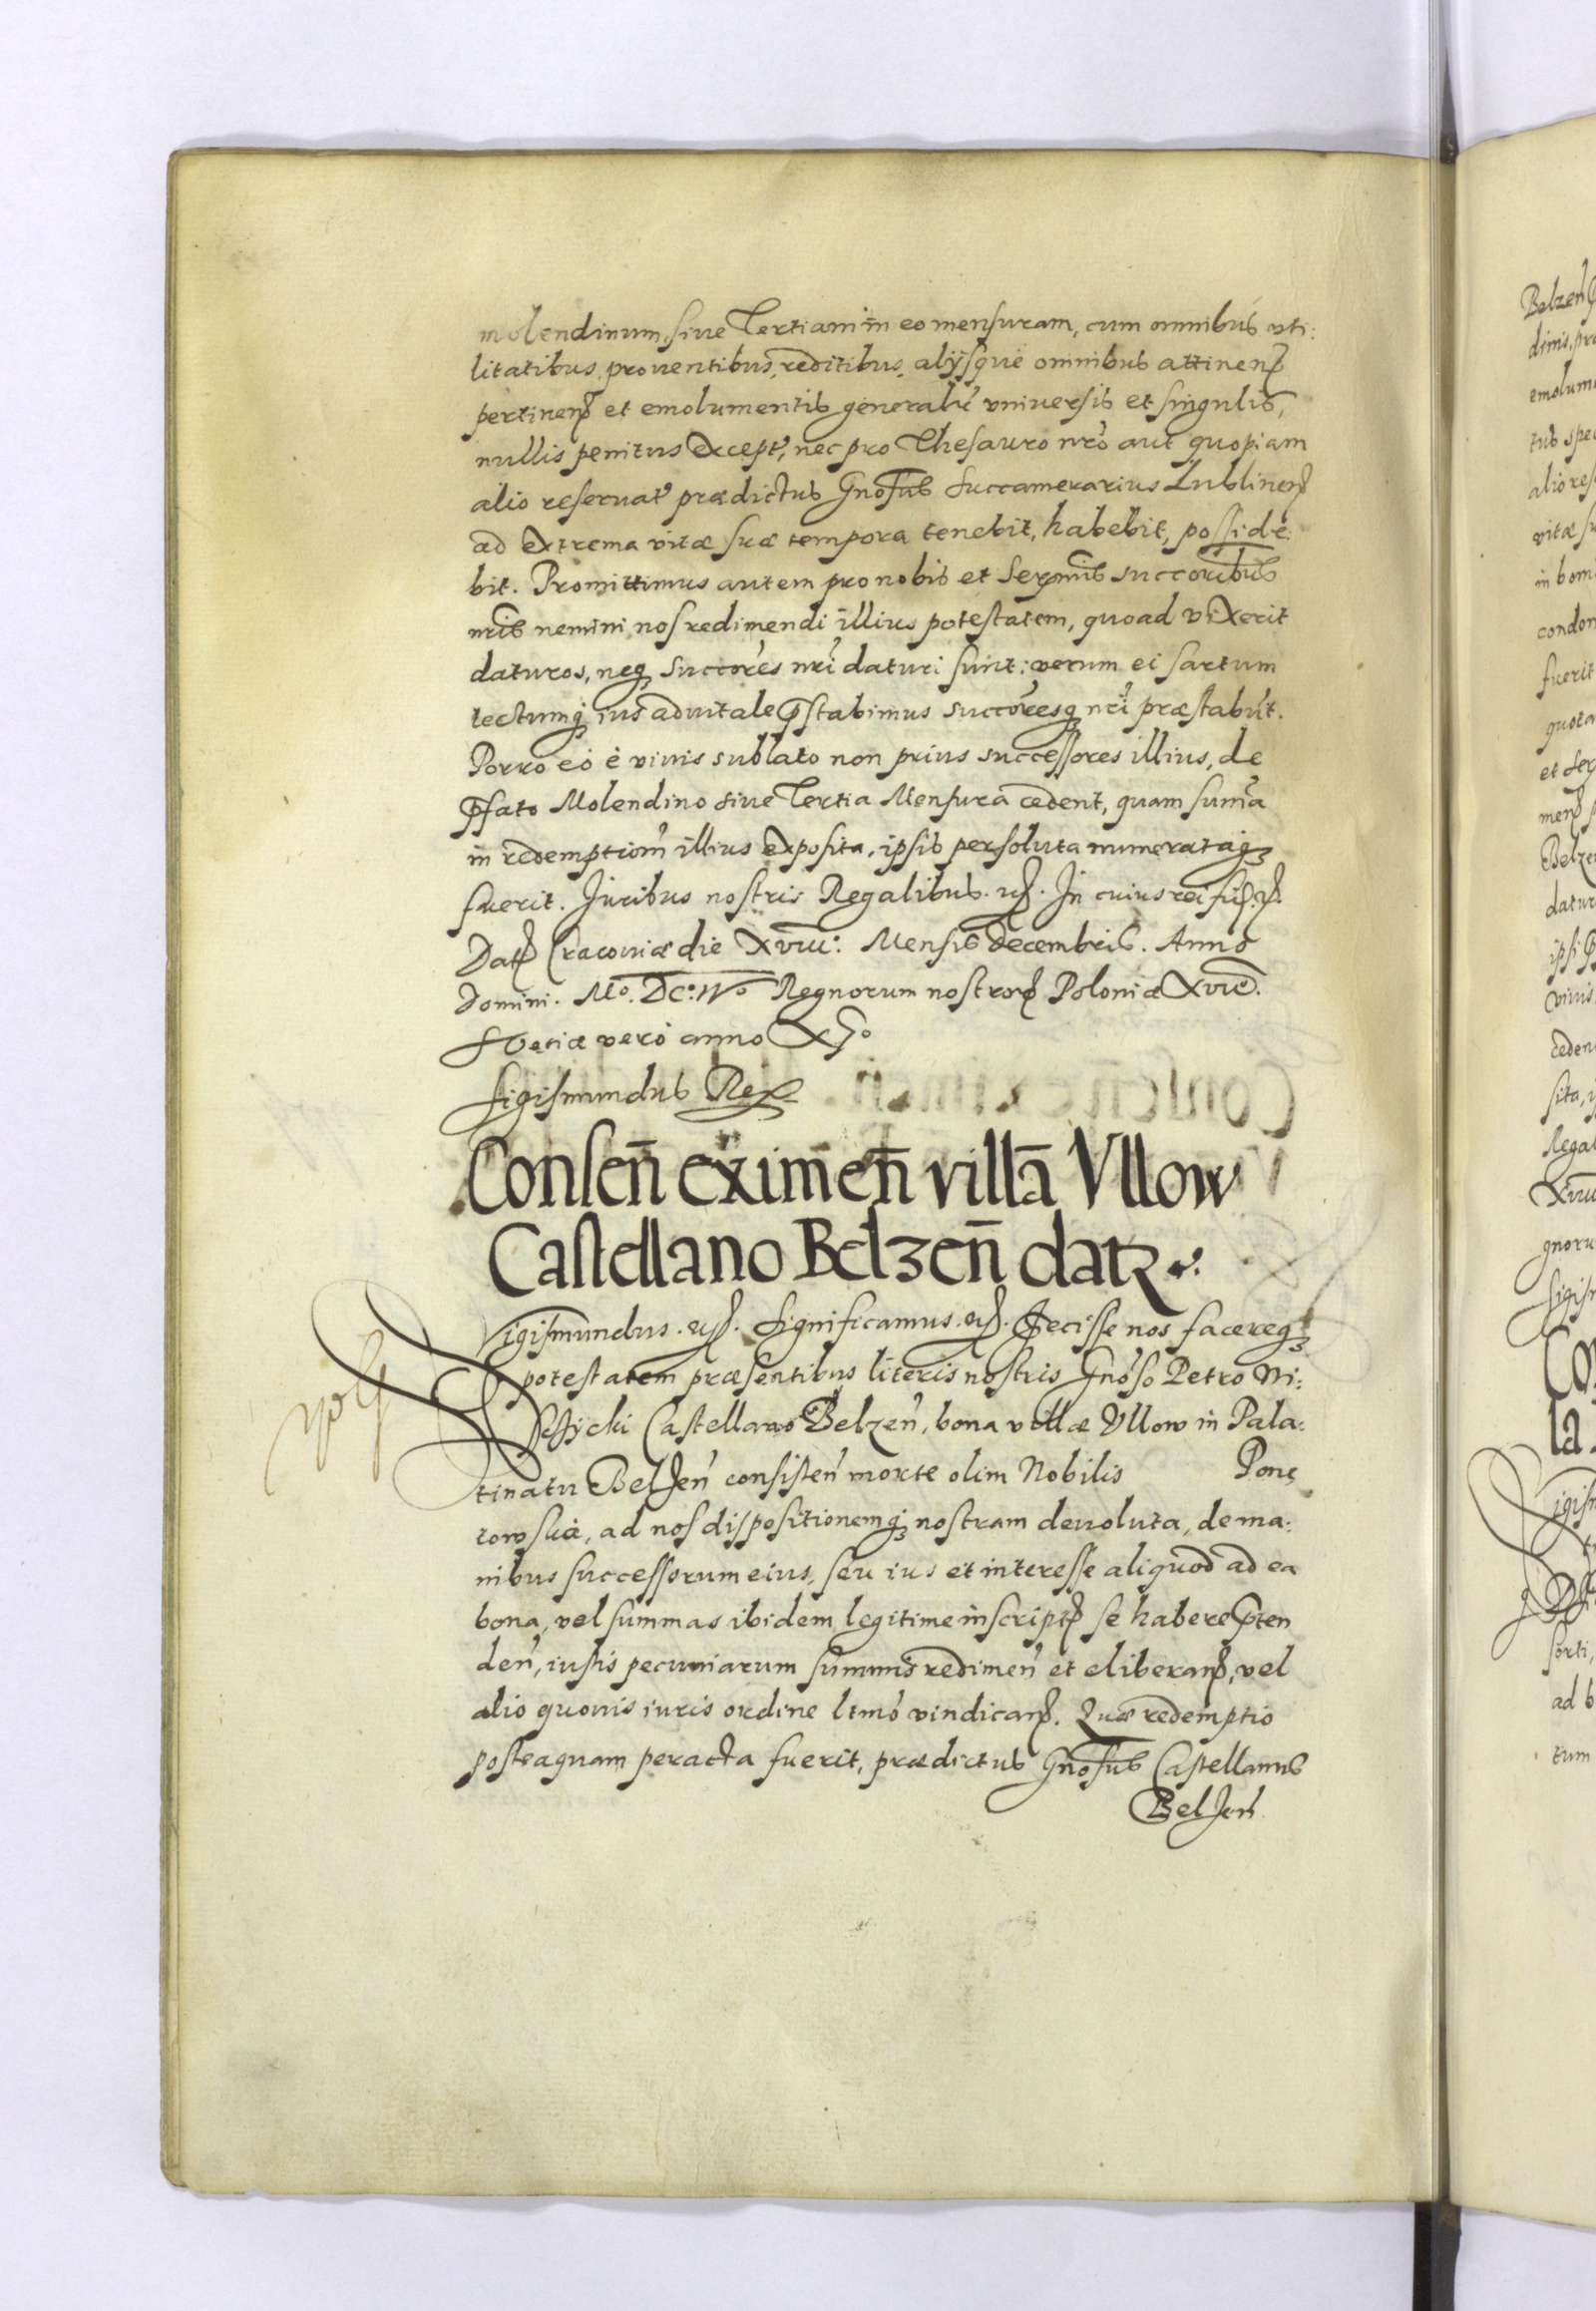 molendinum, siue Tertiam in eo mensuram, cum omnibus vti:
litatibus, prouentibus, reditibus, alijsque omnibus attinen
pertinen et emolumentis generalr vniuersis et singulis,
nullis penitus except, nec pro Thesauro nro aut quopiam
alio reseruat prædictus Gnosus Succamerarius Lublinen
ad extrema vitæ suæ tempora tenebit, habebit, posside:
bit. Promittimus autem pro nobis et Sermis succoribus
nris nemini nos redimendi illius potestatem, quoad vixerit
daturos, neq succores nri daturi sunt: verum ei sartum
tectumq ius aduitale pstabimus succoresq nri præstabut.
Porro eo è viuis sublato non prius successores illius, de
pfato Molendino siue Tertia Mensura cedent, quam suma
in redemptiom illius exposita, ipsis persoluta numerataq
fuerit. Juribus nostris Regalibus. In cuius rei
Dat Cracouiæ die XVIII. Mensis Decembris. Anno
Domini. Mo. DC. IVo Regnorum nostror Poloniæ XVII.
Sveciæ vero anno XIo
Sigismundus Rex
Consen eximen villa Vllow
Castellano Belzen datz
Sigismundus. Significamus. Fecisse nos facereq
potestatem præsentibus literis nostris Gnoso Petro Mi:
Castellano Belzen, bona villæ Vllow in Pala:
tinatu Belzen consisten morte olim Nobilis Ponę
towska, ad nos dispositionemq nostram deuoluta, de ma:
nibus successorum eius, seu ius et interesse aliquod ad ea
bona, vel summas ibidem legitime inscript se habere pten
den, iustis pecuniarum summis redimen et eliberan, vel
alio quouis iuris ordine ltmo vindican. Quæ redemptio
posteaquam peracta fuerit, prædictus Gnosus Castellanus
Belzen